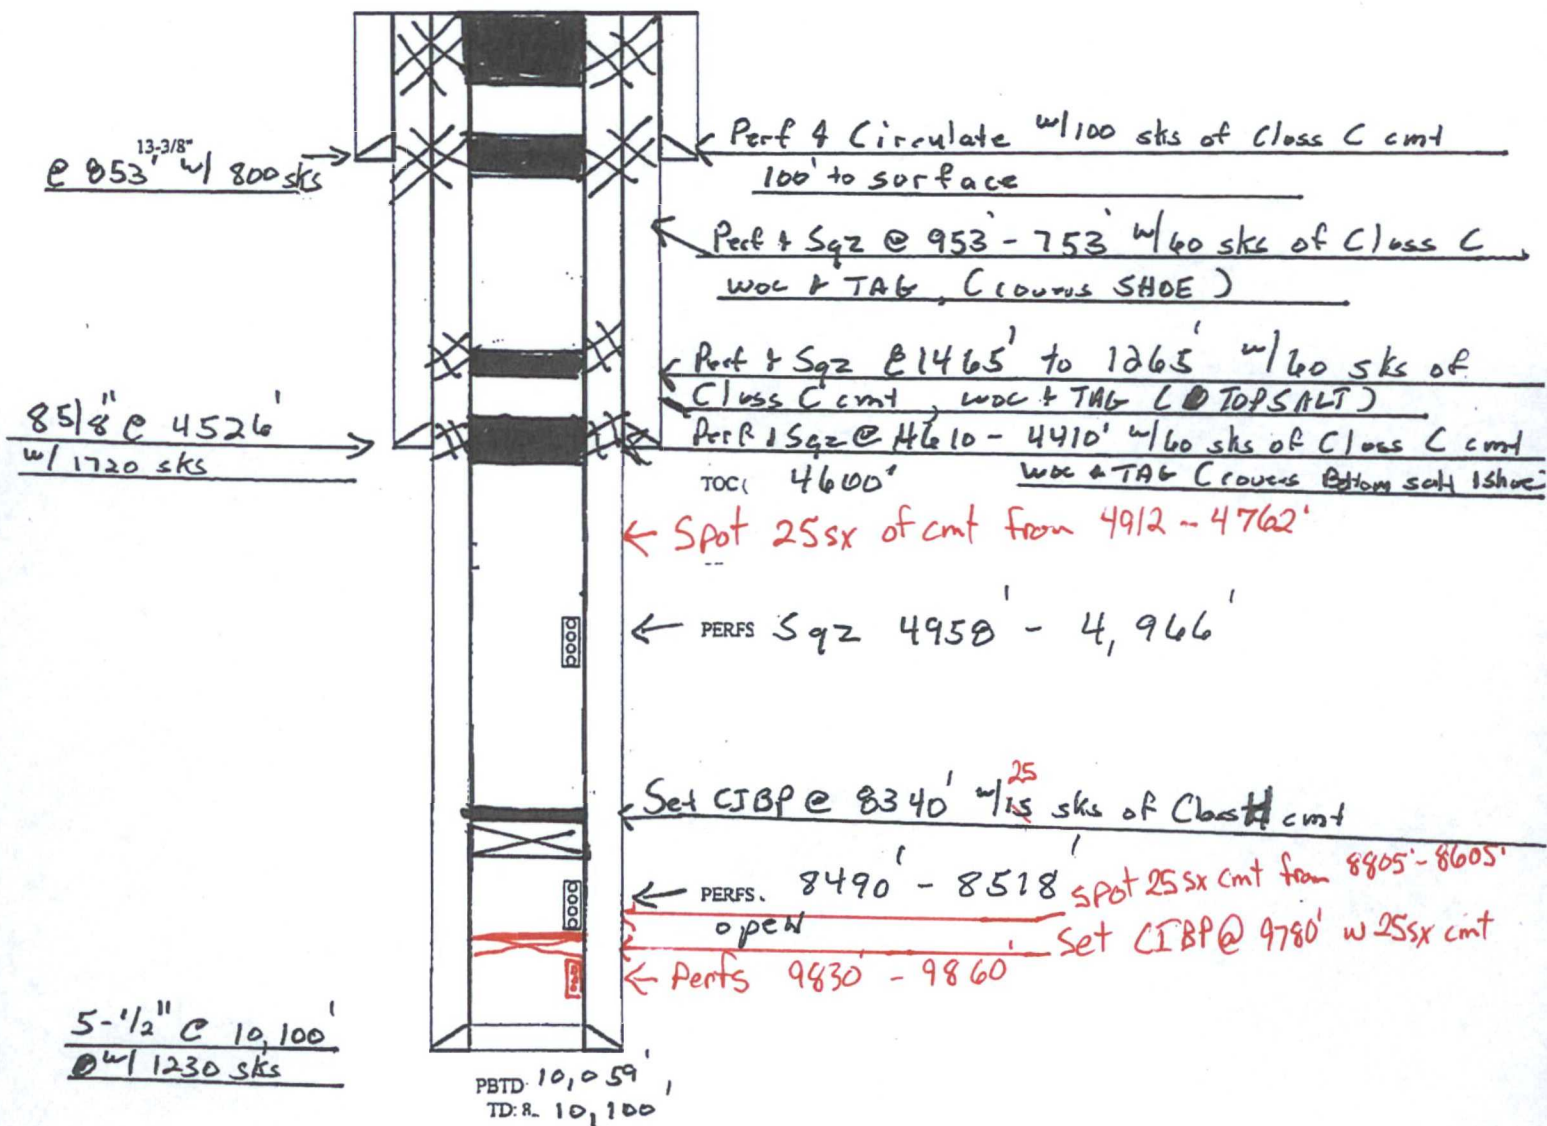 13-3/8"
@ 853' w/ 800 sks
Perf & Circulate w/100 sks of Class C cmt
100' to surface
Perf & Sqz @ 953' - 753' w/60 sks of Class C
woc & TAG, (covers SHOE)
Perf & Sqz @ 1465' to 1265' w/60 sks of
Class C cmt, woc & TAG ( TOPSALT)
8 5/8" @ 4526'
w/ 1720 sks
Perf & Sqz @ 4610 - 4410' w/60 sks of Class C cmt
woc & TAG Ccovers Bottom salt /Shoe
TOC( 4600'
← Spot 25sx of cmt from 4912 - 4762'
← PERFS Sqz 4958' - 4,966'
25
Set CIBP @ 8340' w/15 sks of Class H cmt
← PERFS. 8490' - 8518'
open
spot 25 sx cmt from 8805' - 8605'
Set CIBP @ 9780' w 25sx cmt
← Perfs 9830' - 9860'
5-1/2" @ 10,100'
w/ 1230 sks
PBTD 10,059'
TD: 8. 10,100'